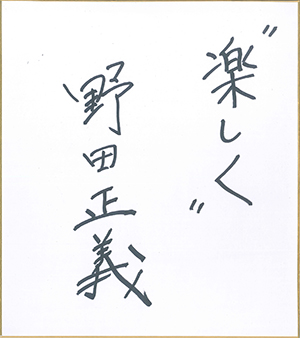 〝楽しく〟
野田正義